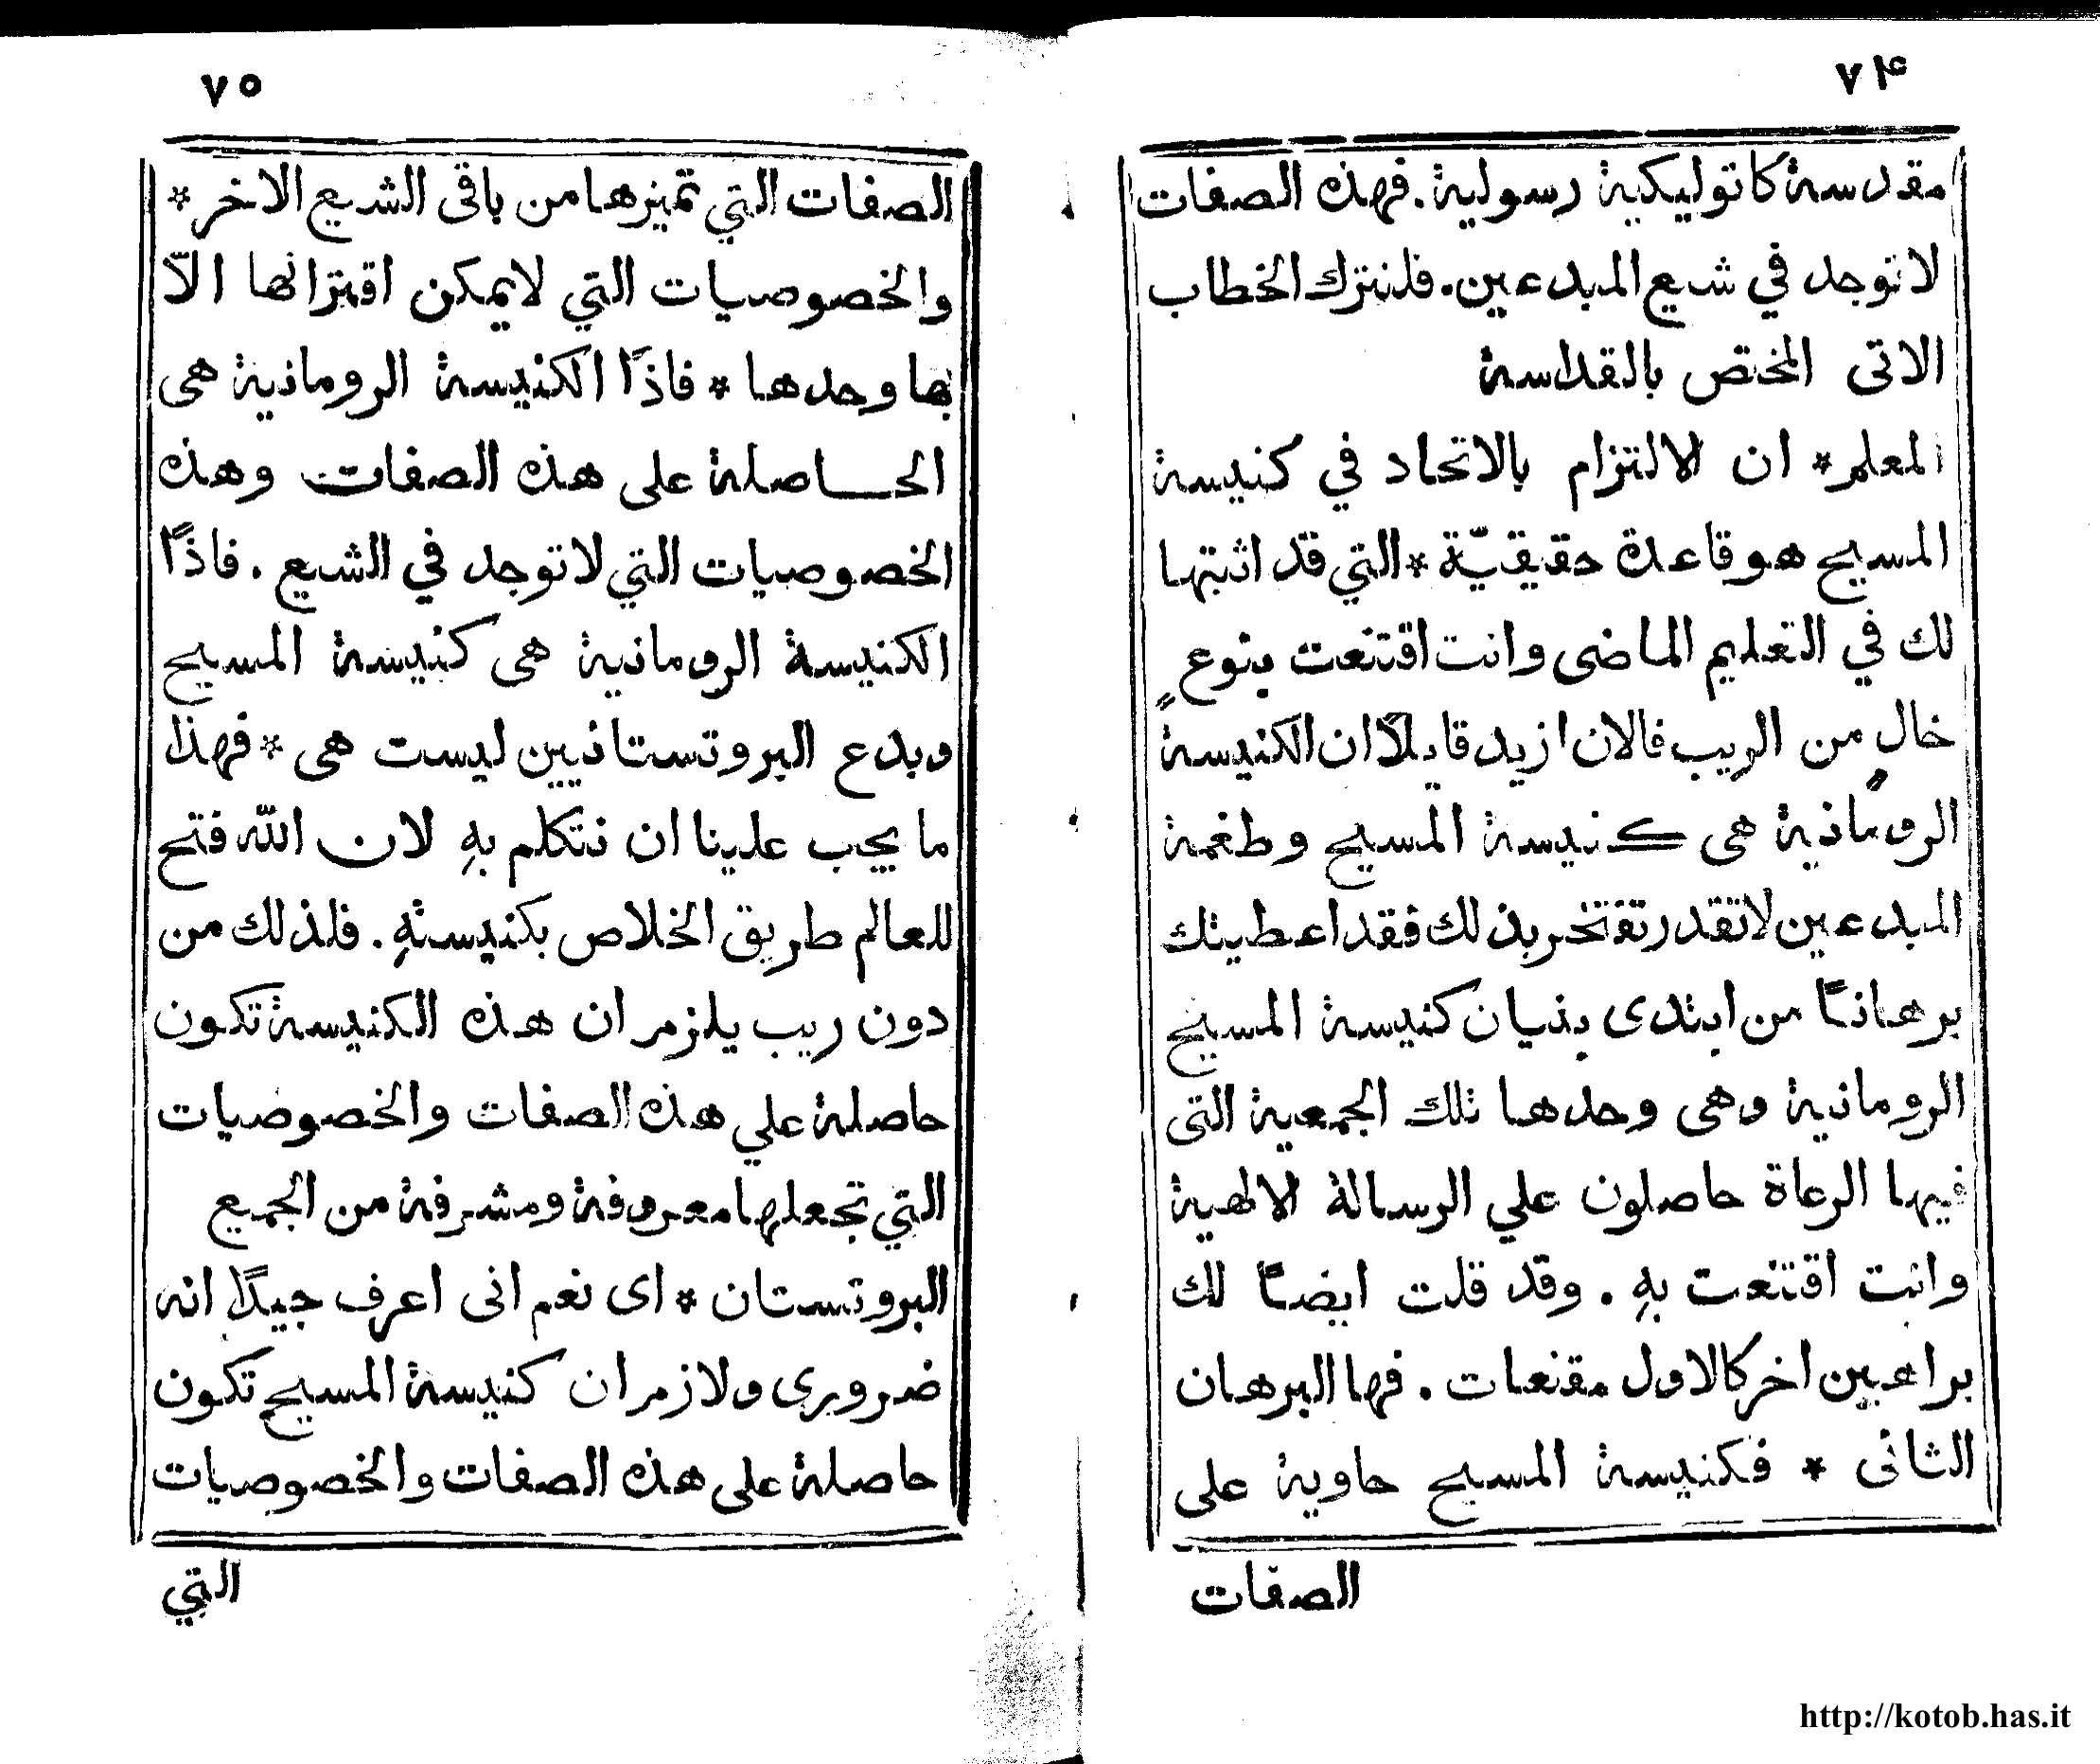 ٧٤
مقدسة كاتوليكية رسولية. فهذه الصفات
لا توجد في شيع المبدعين. فلنترك الخطاب
الاتى المختص بالقداسة
المعلم * ان الالتزام بالاتحاد في كنيسة
المسيح هو قاعدة حقيقيّة * التي قد اثبتها
لك في التعليم الماضى وانت اقتنعت بنوعٍ
خالٍ من الريب فالان ازيد قايلاً ان الكنيسة
الرومانية هى كنيسة المسيح وطغمة
المبدعين لا تقدر تفتخر بذلك فقد اعطيتك
برهانًا من ابتدى بنيان كنيسة المسيح
الرومانية وهى وحدها تلك الجمعية التى
فيها الرعاة حاصلون علي الرسالة الالهية
وانت اقتنعت بهِ. وقد قلت ايضًا لك
براهين اخر كالاول مقنعات. فها البرهان
الثانى * فكنيسة المسيح حاوية على
الصفات
٧٥
الصفات التي تميزها من باقى الشيع الاخر *
والخصوصيات التي لا يمكن اقترانها الاّ
بها وحدها * فاذًا الكنيسة الرومانية هى
الحاصلة على هذه الصفات وهذه
الخصوصيات التي لا توجد في الشيع. فاذًا
الكنيسة الرومانية هى كنيسة المسيح
وبدع البروتستانيين ليست هى * فهذا
ما يجب علينا ان نتكلم بهِ لان الله فتح
للعالم طريق الخلاص بكنيستهِ. فلذلك من
دون ريب يلزم ان هذه الكنيسة تكون
حاصلة علي هذه الصفات والخصوصيات
التي تجعلها معروفة ومشرفة من الجميع
البروتستان * اى نعم انى اعرف جيدًا انه
ضرورى ولازم ان كنيسة المسيح تكون
حاصلة على هذه الصفات والخصوصيات
التي
http://kotob.has.it